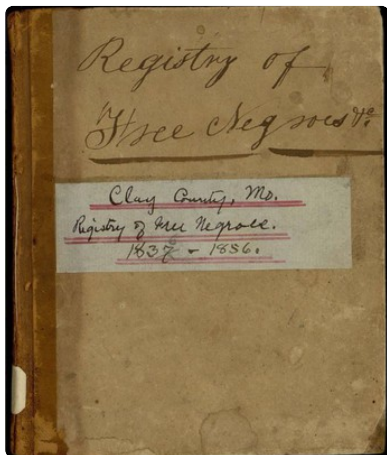 Registry of
Free Negroes &c
Clay County, Mo.
Registry of Free Negroes.
1837 - 1856.